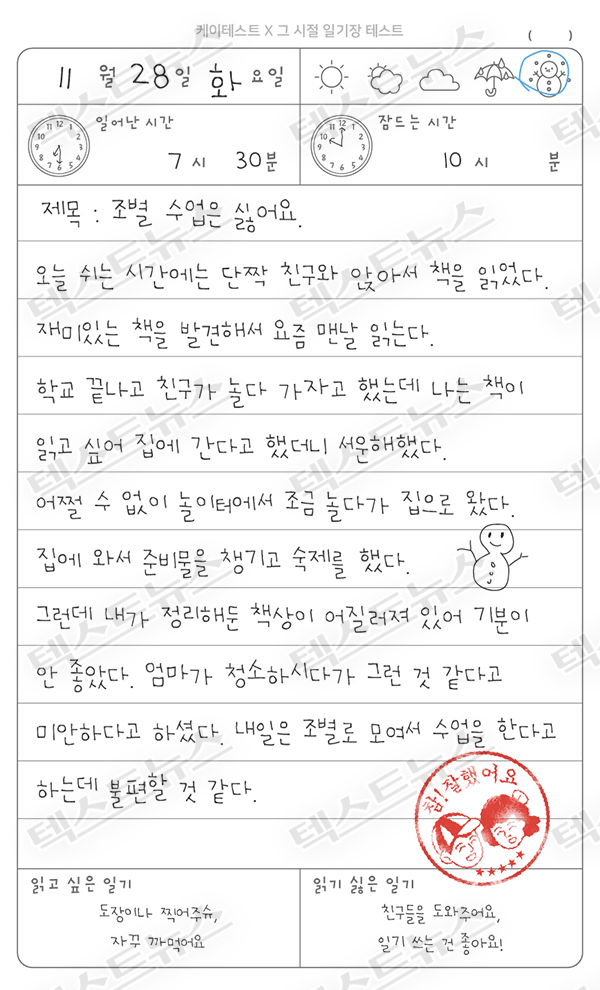 케이테스트 X 그 시절 일기장 테스트
( )
11 월 28 일 화 요일
일어난 시간
7 시 30 분
잠드는 시간
10 시 분
제목 : 조별 수업은 싫어요.
오늘 쉬는 시간에는 단짝 친구와 앉아서 책을 읽었다.
재미있는 책을 발견해서 요즘 맨날 읽는다.
학교 끝나고 친구가 놀다 가자고 했는데 나는 책이
읽고 싶어 집에 간다고 했더니 서운해했다.
어쩔 수 없이 놀이터에서 조금 놀다가 집으로 왔다.
집에 와서 준비물을 챙기고 숙제를 했다.
그런데 내가 정리해둔 책상이 어질러져 있어 기분이
안 좋았다. 엄마가 청소하시다가 그런 것 같다고
미안하다고 하셨다. 내일은 조별로 모여서 수업을 한다고
하는데 불편할 것 같다.
참! 잘했어요
읽고 싶은 일기
도장이나 찍어주슈,
자꾸 까먹어요
읽기 싫은 일기
친구들을 도와주어요,
일기 쓰는 건 좋아요!
텍스트뉴스